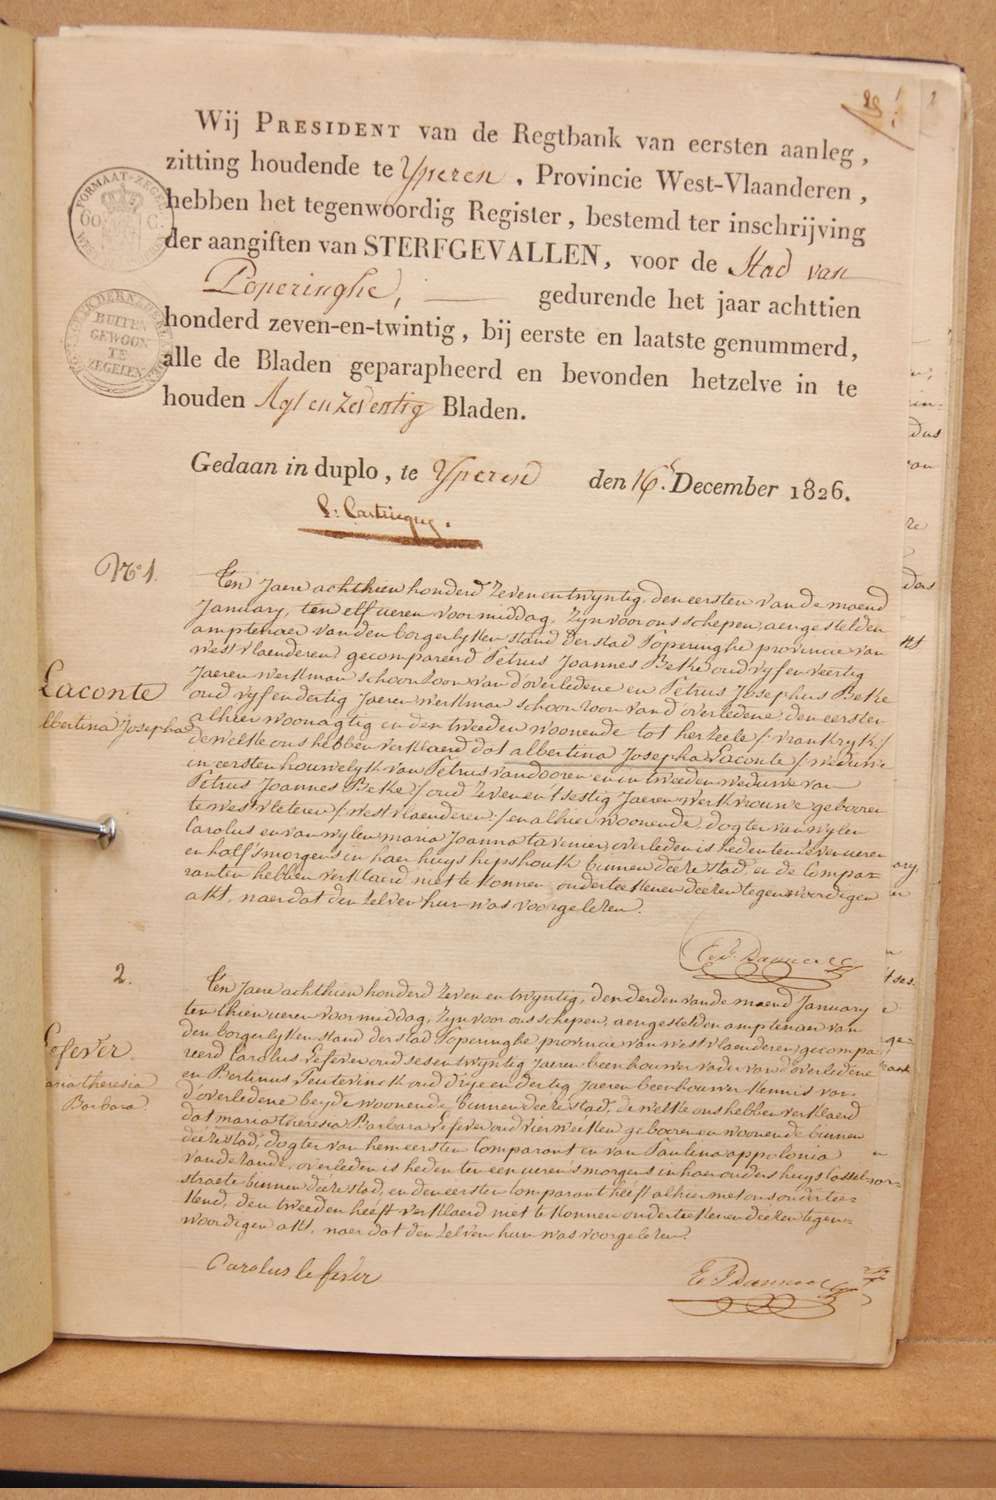 Wij PRESIDENT van de Regtbank van eersten aanleg,
zitting houdende te Yperen, Provincie West-Vlaanderen,
hebben het tegenwoordig Register, bestemd ter inschrijving
der aangiften van STERFGEVALLEN, voor de Stad van
Poperinghe, gedurende het jaar achttien
honderd zeven-en-twintig, bij eerste en laatste genummerd,
alle de Bladen geparapheerd en bevonden hetzelve in te
houden Agt en zeventig Bladen.
Gedaan in duplo, te Yperen den 16 December 1826.
FORMAAT-ZEGEL
60 C.
BUITEN
GEWOON
TE
ZEGELEN
N° 1.
Laconte
Albertina Josepha
Ten Jaere achthien honderd zeven en twyntig, den eersten van de maend
January, ten elf ueren voormiddag, Zyn voor ons schepen, aengestelden
amptenaer van den borgerlyken stand der stad Poperinghe provincie van
west vlaenderen gecompareerd Petrus Joannes Beke oud vyf en veertig
Jaeren werkman schoonzoon van d'overledene en Petrus Josephus Beke
oud vyf en dertig Jaeren werkman schoonzoon van d'overledene, den eersten
alhier woonagtig en den tweeden woonende tot herzeele /:vrankryk:/
dewelke ons hebben verklaerd dat albertina Josepha Laconte / weduwe
in eersten houwelyk van Petrus vandooren en in tweeden weduwe van
Petrus Joannes Beke / oud zeven en tsestig Jaeren werkvrouwe geboren
te westvleteren /:westvlaenderen:/ en alhier woonende, dogter van wylen
Carolus en van wylen maria Joanna tavenier, overleden is heden ten zeven ueren
en half s'morgens in haer huys hipshouk binnen deeze stad, en de Compa-
ranten hebben verklaerd niet te konnen onderteekenen deezen tegenwoordigen
akt, naer dat den zelven hun was voorgelezen.
2.
Lefever
maria theresia
Barbara
Ten Jaere achthien honderd zeven en twyntig, den derden van de maend January
ten thien ueren voormiddag, zyn voor ons schepen, aengestelden amptenaer van
den borgerlyken stand der stad Poperinghe provincie van westvlaenderen, gecompa-
reerd Carolus Lefever oud ses en twyntig Jaeren beenhouwer vader van d'overledene
en Bertinus Peutevinck oud drye en dertig Jaeren beenhouwer kennis van
d'overledene beyde woonende binnen deeze stad, dewelke ons hebben verklaerd
dat maria theresia Barbara Lefever oud vier weeken geboren en woonende binnen
deeze stad, dogter van hem eersten Comparant en van Paulina appolonia
vande lande, overleden is heden ten een ueren s'morgens in haer ouders huys Cassel-
straete binnen deeze stad, en den eersten Comparant heeft alhier met ons ondertee-
kend, den tweeden heeft verklaerd niet te konnen onderteekenen deezen tegen-
woordigen akt, naer dat den zelven hun was voorgelezen.
Carolus le fever